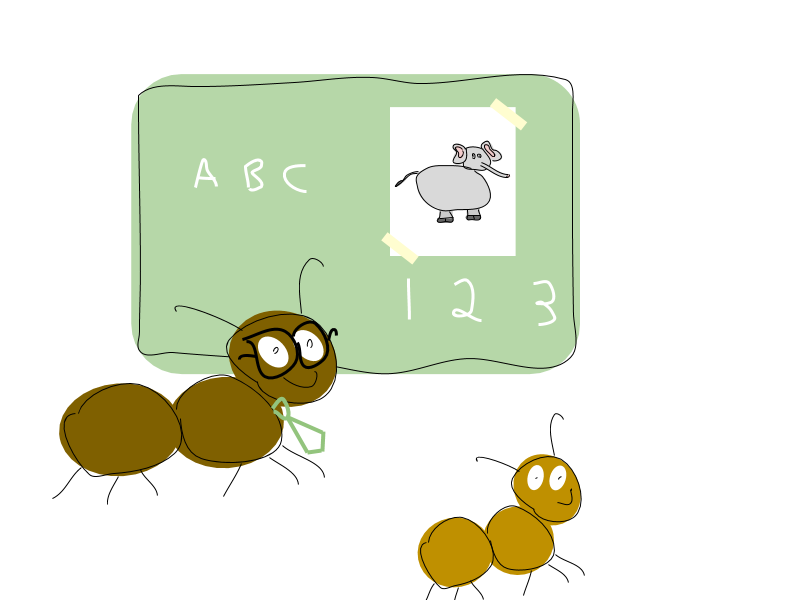 A B C
1 2 3